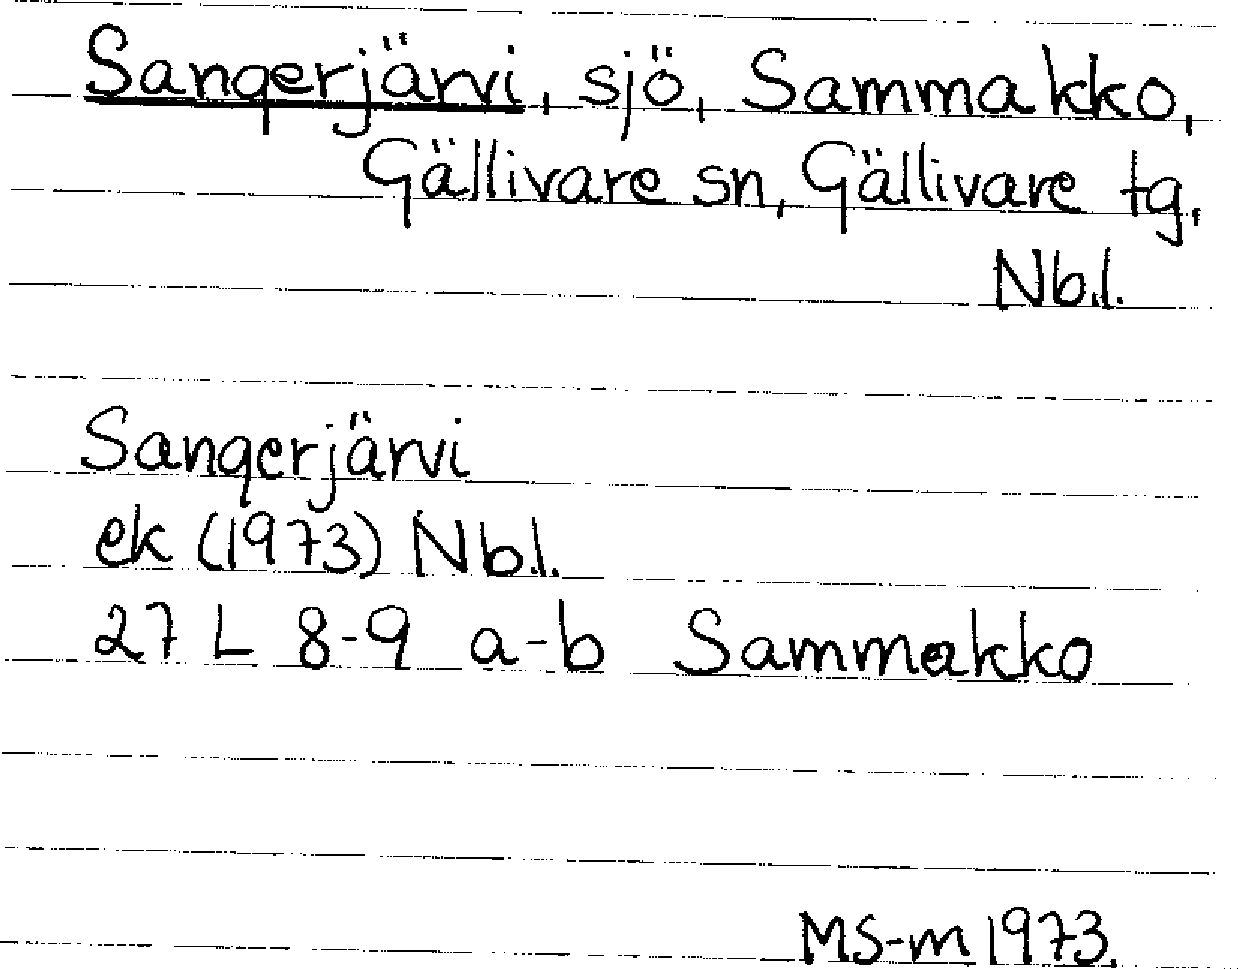 Sangerjärvi, sjö, Sammakko,
Gällivare sn, Gällivare tg,
Nb.l.
Sangerjärvi
ek (1973) Nb.l.
27 L 8-9 a-b Sammakko
MS-m 1973.